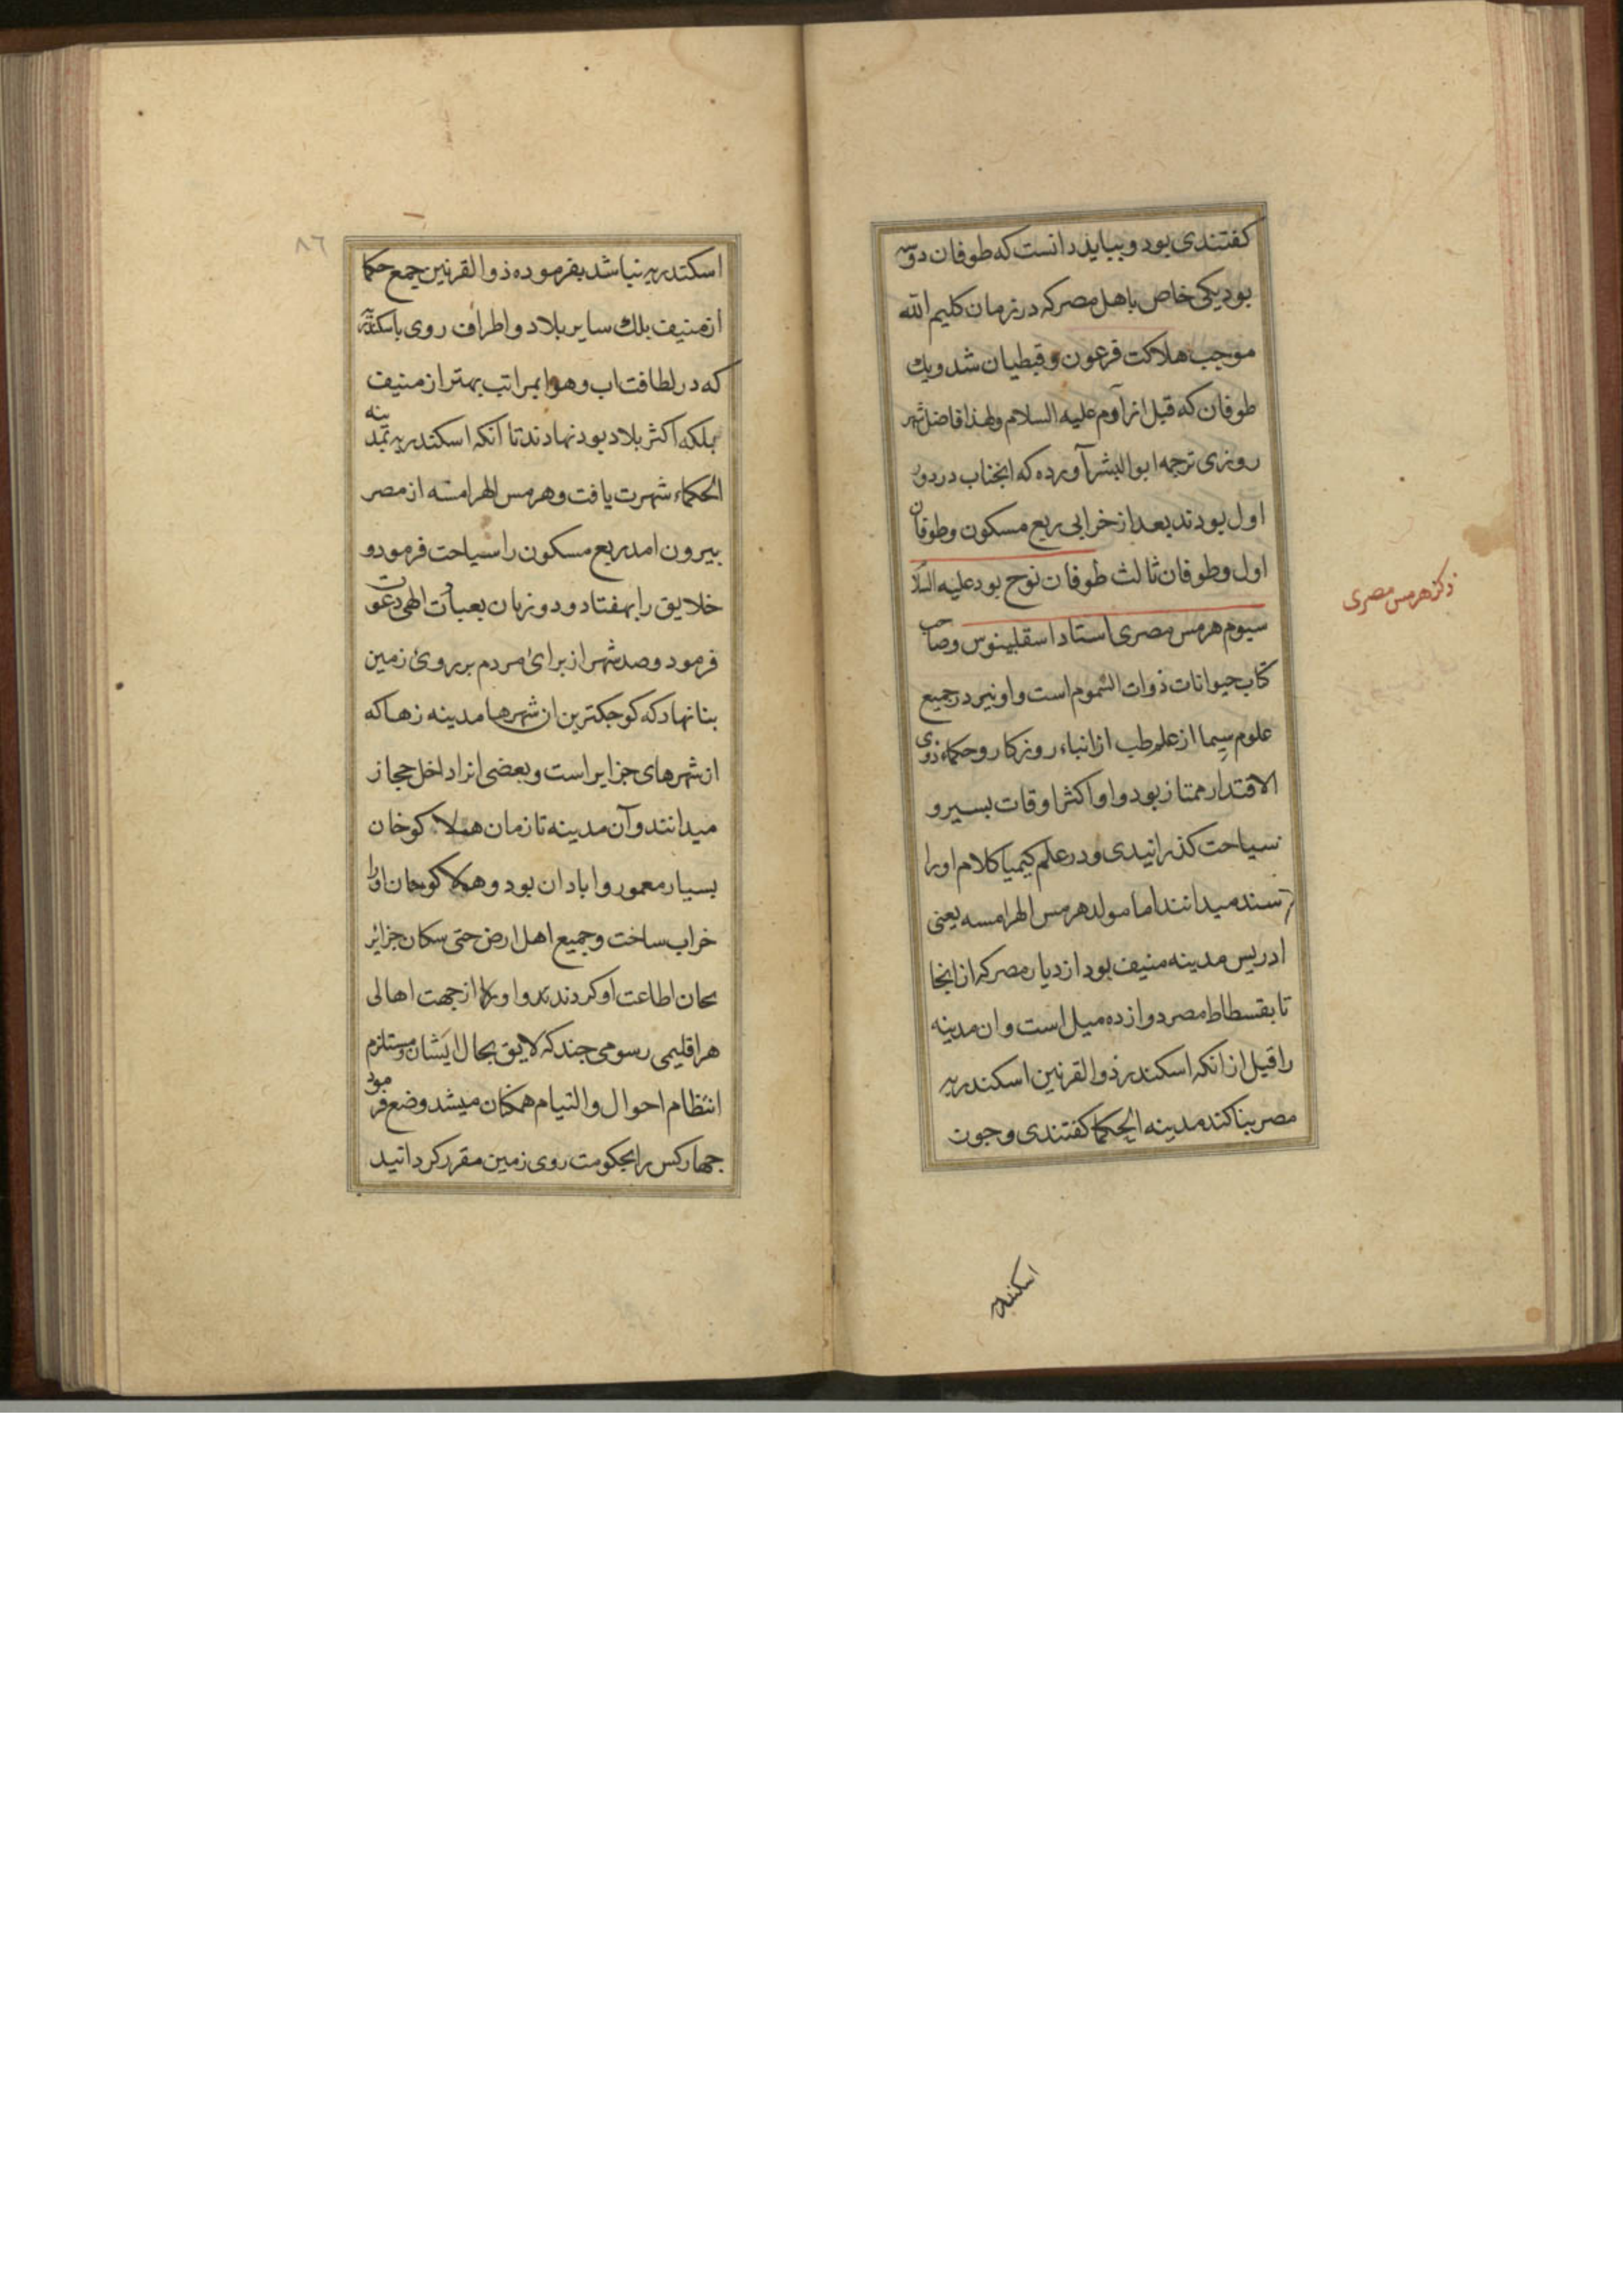 کفتندی بود و بباید دانست که طوفان دو
بود یکی خاص باهل مصر که در زمان کلیم الله
موجب هلاکت فرعون و قبطیان شد و یک
طوفان که قبل از آدم علیه السلام ولهذا فاضل شهر
روزی ترجمه ابوالبشر آورده که انجناب در دور
اول بودند بعد از خرابی ربع مسکون و طوفان
اول و طوفان ثالث طوفان نوح بود علیه السلا
سیوم هرمس مصری استاد اسقلبینوس وصاحب
ذکر هرمس مصری
کتاب حیوانات ذوات السموم است و او نیز در جمیع
علوم سیما از علم طب از انباء روزکار و حکماء ذوی
الاقتدار ممتاز بود و او اکثر اوقات بسیر و
سیاحت کذرانیدی و در علم کیمیا کلام او را
سند میدانند اما مولد هرمس الهرامسه یعنی
ادریس مدینه منیف بود از دیار مصر که از انجا
تا بقسطاط مصر دوازده میل است و ان مدینه
را قبل از انکه اسکندر ذوالقرنین اسکندریه
مصر بنا کند مدینه الحکما کفتندی و جون
اسکندریه
٨٦
اسکندریه نباشد بفرموده ذوالقرنین جمع حکما
از منیف بلك سایر بلاد و اطراف روی باسکندریه
که در لطافت اب و هوا بمراتب بهتر از منیف
بلکه اکثر بلاد بود نهادند تا آنکه اسکندریه بمدینه
الحکماء شهرت یافت و هرمس الهرامسه از مصر
بیرون امد ربع مسکون را سیاحت فرمود و
خلایق را بهفتاد و دو زبان بعبادت الهی دعوت
فرمود و صد شهر از برای مردم بر روی زمین
بنا نهاد که کوجکترین ان شهرها مدینه زهاکه
از شهرهای جزایر است و بعضی انرا داخل حجاز
میدانند و آن مدینه تا زمان هملا کوخان
بسیار معمور و ابادان بود و هملا کوخان اورا
خراب ساخت و جمیع اهل ارض حتی سکان جزائر
بحان اطاعت او کردند و او از جهت اهالی
هر اقلیمی رسومی جند که لایق بحال ایشان و مستلزم
انتظام احوال و التیام همکان میشد وضع فرمود
جهار کس را بحکومت روی زمین مقرر کردانید